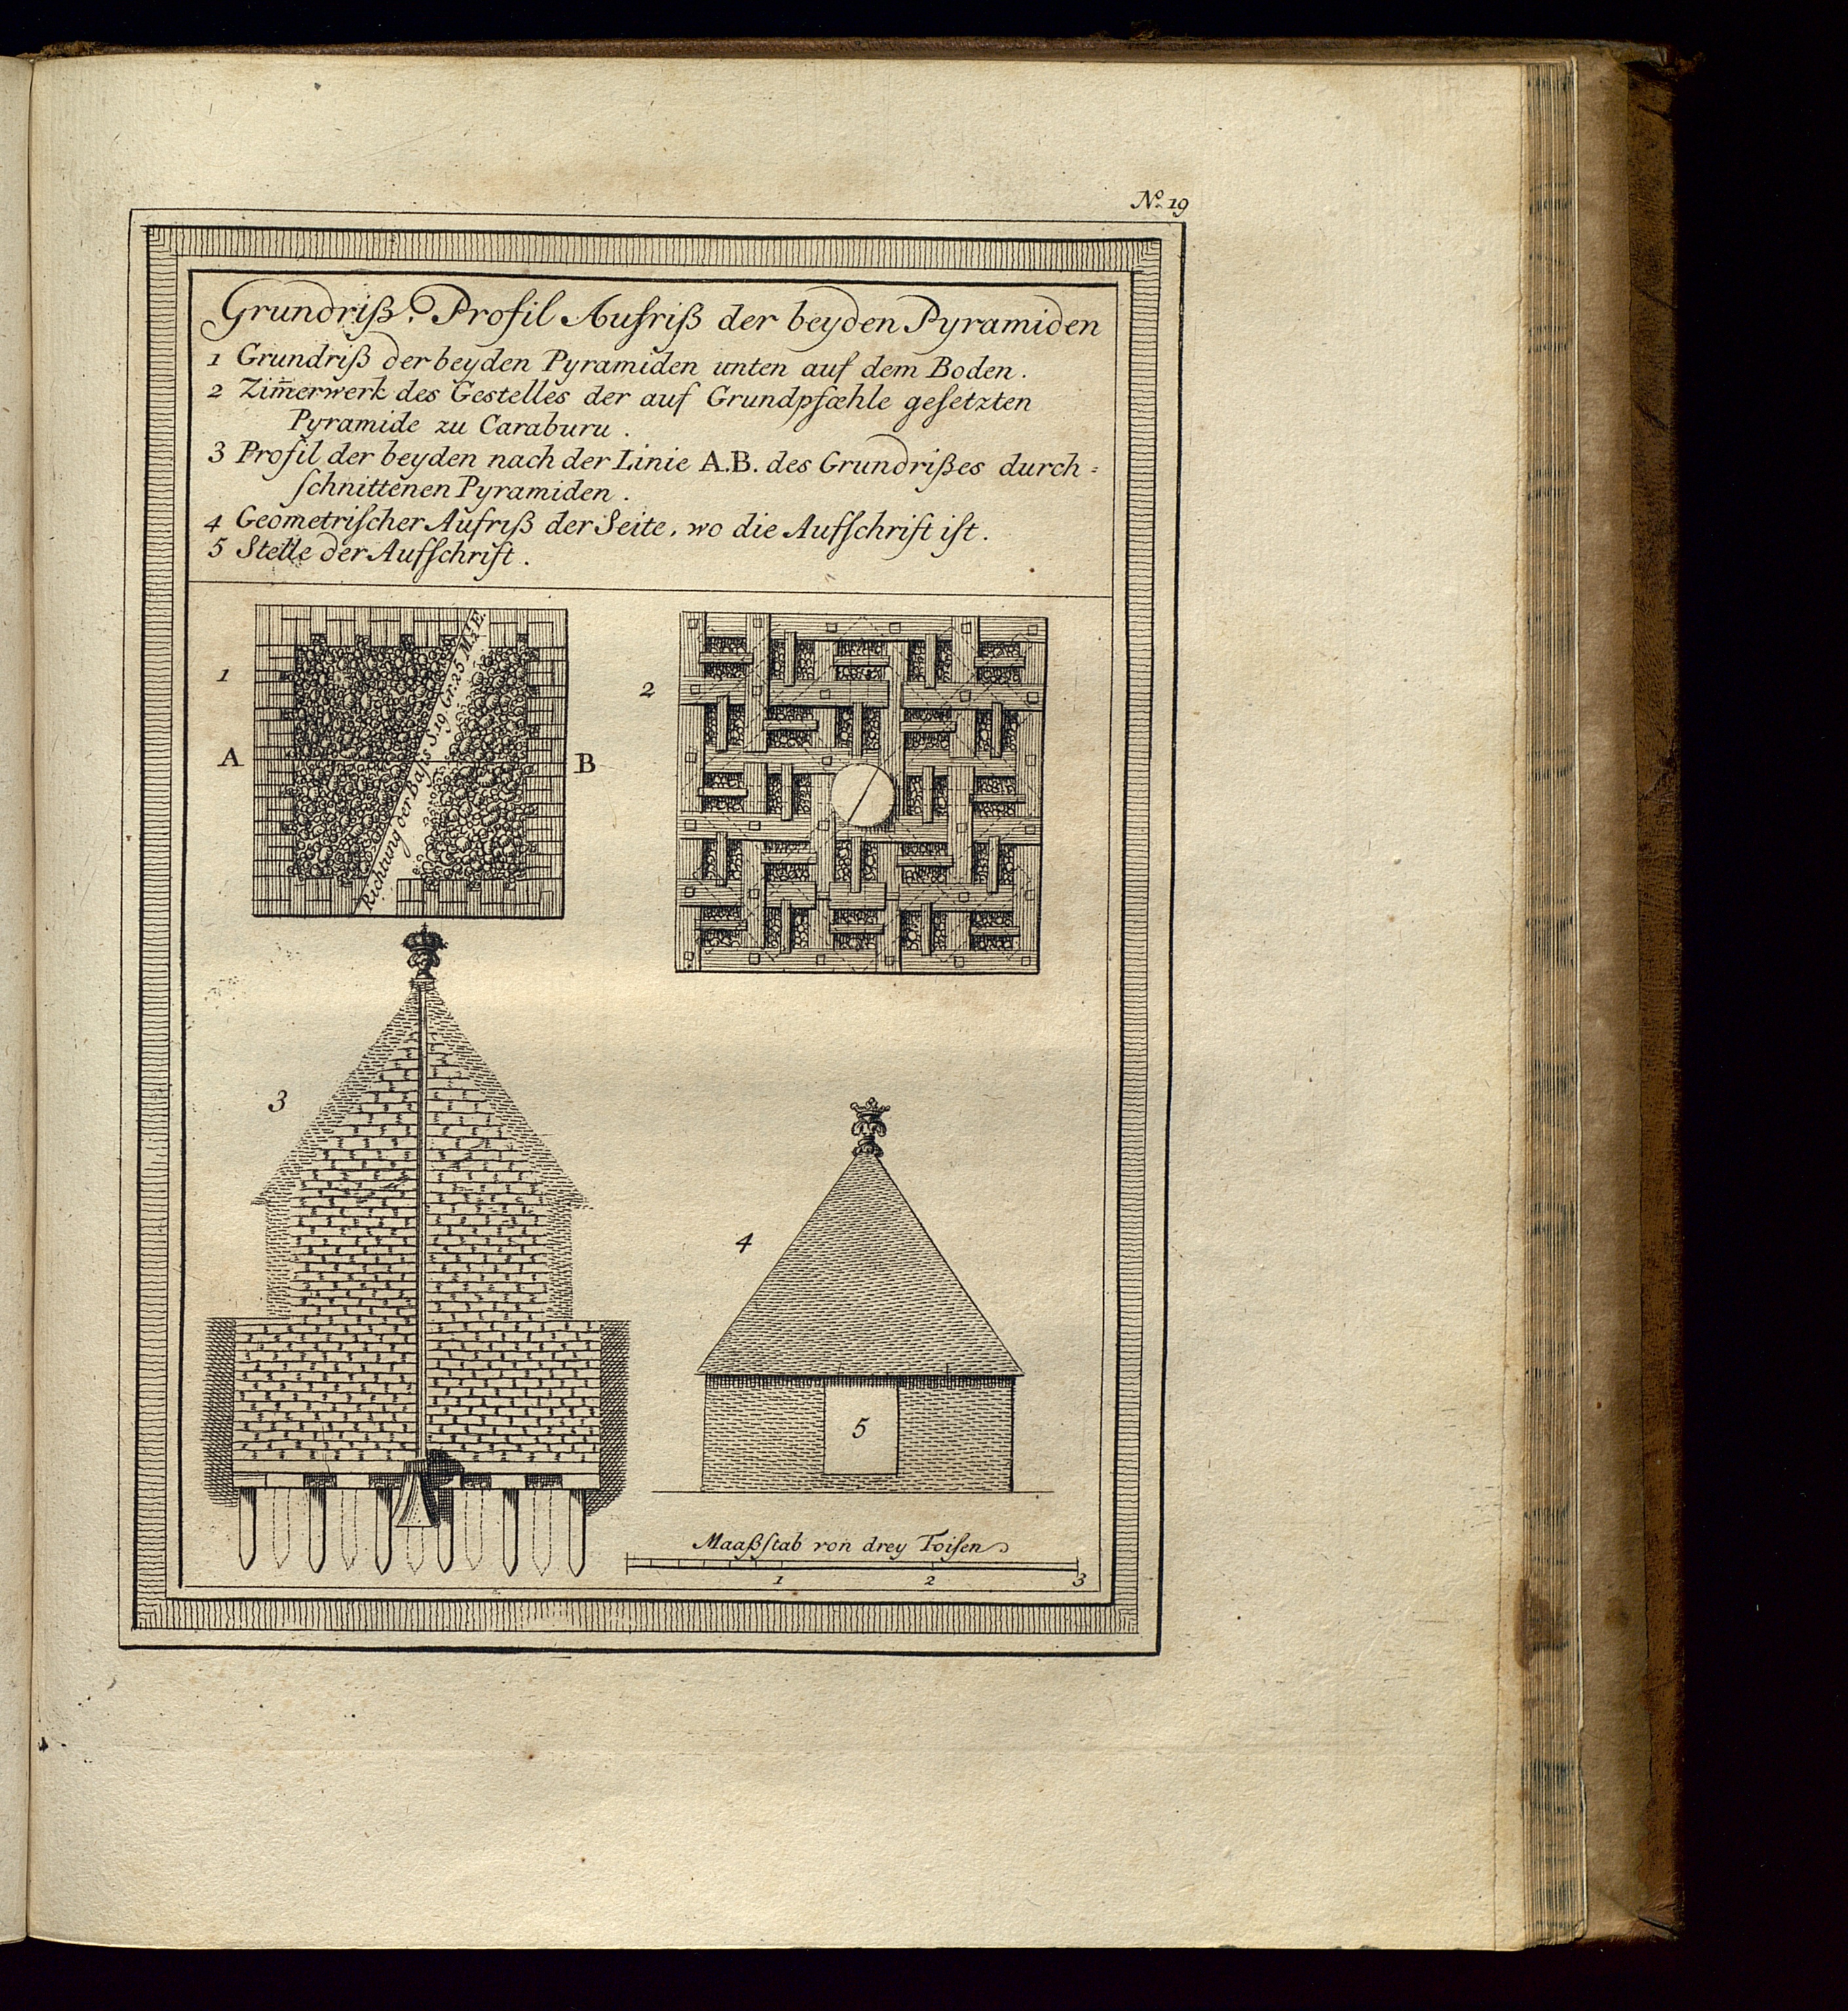 No. 19
Grundriß, Profil Aufriß der beyden Pyramiden
1 Grundriß der beyden Pyramiden unten auf dem Boden.
2 Zim̄erwerk des Gestelles der auf Grundpfæhle geſetzten
Pyramide zu Caraburu.
3 Profil der beyden nach der Linie A.B. des Grundrißes durch=
ſchnittenen Pyramiden.
4 Geometriſcher Aufriß der Seite, wo die Aufſchrift iſt.
5 Stelle der Aufſchrift.
1
2
A
B
Richtung der Baſis S. 19 Gr. 25
3
4
5
Maaßſtab von drey Toiſen
1 2 3